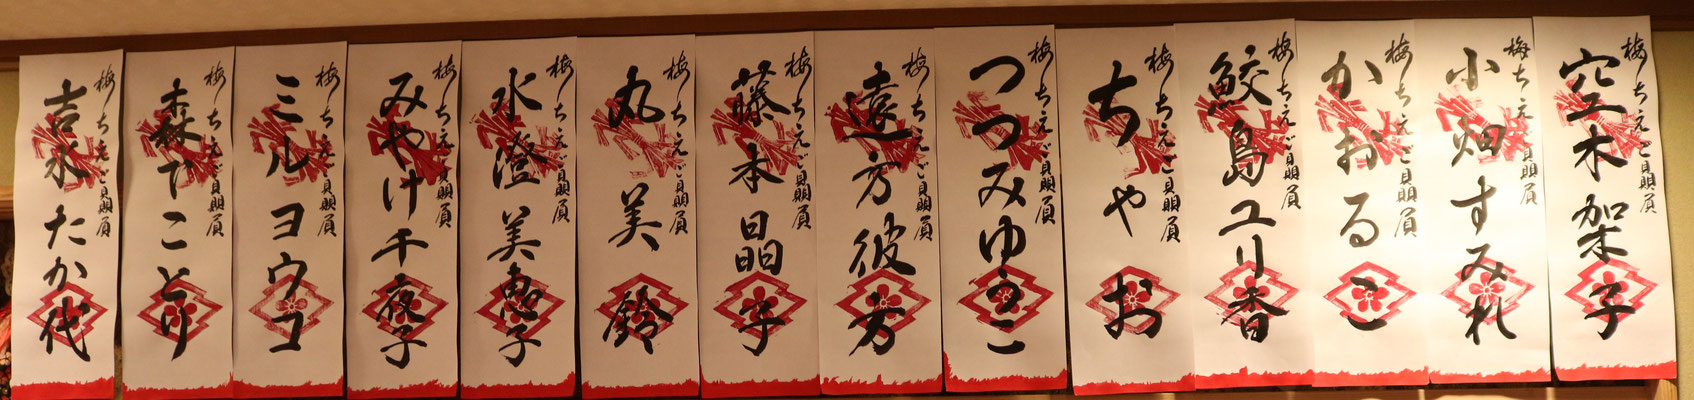 梅ちえご贔屓
空木架子
梅ちえご贔屓
小畑すみれ
梅ちえご贔屓
かおるこ
梅ちえご贔屓
鮫島ユリ香
梅ちえご贔屓
ちゃお
梅ちえご贔屓
つつみゆうこ
梅ちえご贔屓
遠方彼方
梅ちえご贔屓
藤本晶子
梅ちえご贔屓
丸美鈴
梅ちえご贔屓
水澄美恵子
梅ちえご贔屓
みやけ千夜子
梅ちえご贔屓
ミルヨウコ
梅ちえご贔屓
森下ことり
梅ちえご贔屓
吉水たか代